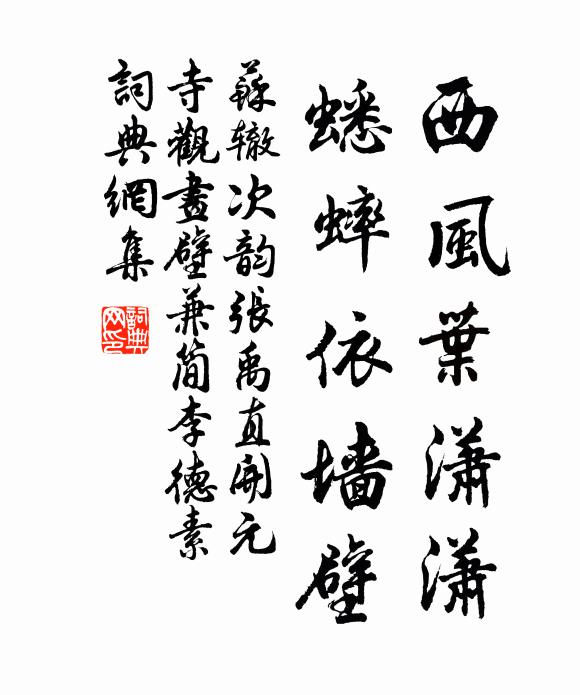 西風葉瀟瀟
蟋蟀依墙壁
蘇辙次韵張禹直開元
寺觀畫壁兼简李德素
詞典網集
詞典
网印